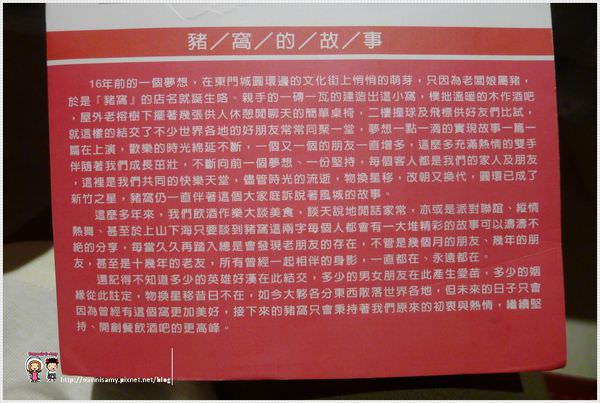 豬／窩／的／故／事
16年前的一個夢想，在東門城圓環邊的文化街上悄悄的萌芽，只因為老闆娘屬豬，
於是『豬窩』的店名就誕生咯。親手的一磚一瓦的建造出這小窩，樸拙溫暖的木作酒吧
，屋外老榕樹下擺著幾張供人休憩閒聊天的簡單桌椅，二樓撞球及飛標供好友們比試，
就這樣的結交了不少世界各地的好朋友常常同聚一堂，夢想一點一滴的實現故事一篇一
篇在上演，歡樂的時光綿延不斷，一個又一個的朋友一直增多，這麼多充滿熱情的雙手
伴隨著我們成長茁壯，不斷向前一個夢想、一份堅持，每個客人都是我們的家人及朋友
，這裡是我們共同的快樂天堂，儘管時光的流逝，物換星移，改朝又換代，圓環已成了
新竹之星，豬窩仍一直伴著這個大家庭訴說著風城的故事。
這麼多年來，我們飲酒作樂大談美食，談天說地閒話家常，亦或是派對聯誼、縱情
熱舞、甚至於上山下海只要談到豬窩這兩字每個人都會有一大堆精彩的故事可以濤濤不
絕的分享，每當久久再踏入總是會發現老朋友的存在，不管是幾個月的朋友、幾年的朋
友，甚至是十幾年的老友，所有曾經一起相伴的身影，一直都在、永遠都在。
還記得不知道多少的英雄好漢在此結交，多少的男女朋友在此產生愛苗，多少的姻
緣從此註定，物換星移昔日不在，如今大夥各分東西散落世界各地，但未來的日子只會
因為曾經有這個窩更加美好，接下來的豬窩只會秉持著我們原來的初衷與熱情，繼續堅
持、開創餐飲酒吧的更高峰。
http://niannisamy.pixnet.net/blog